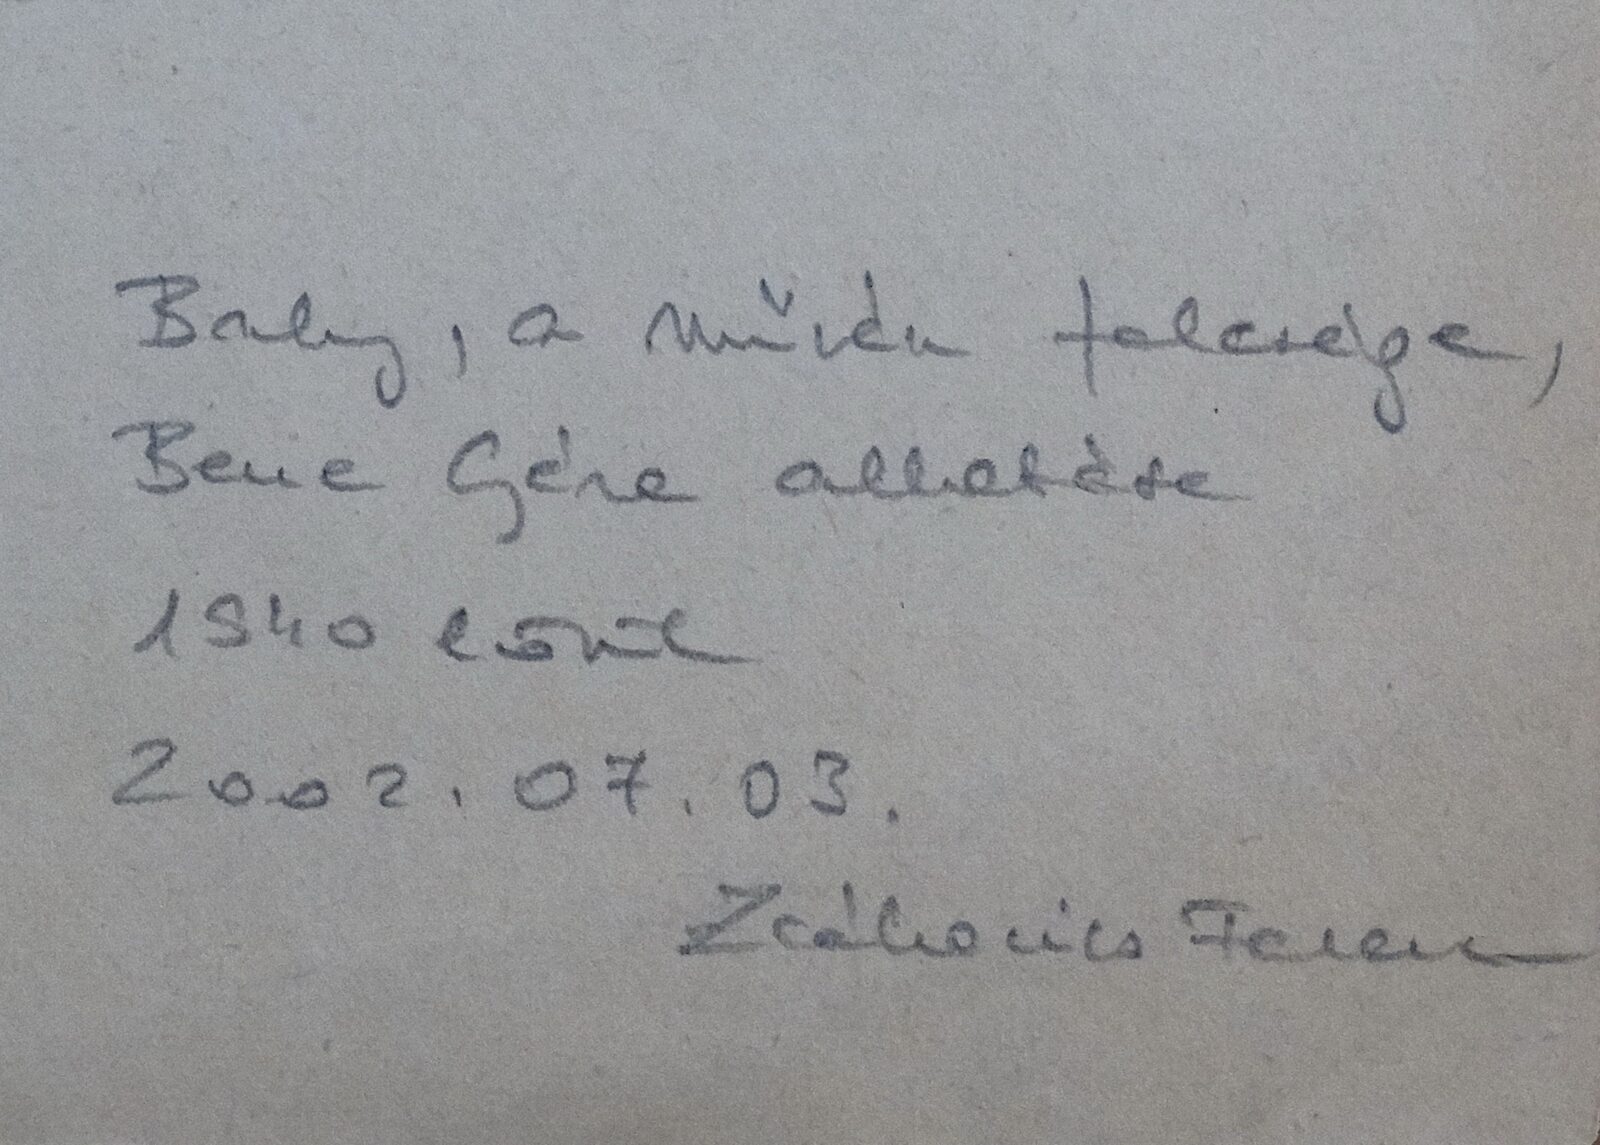 Baby, a művész felesége,
Bene Géza alkotása
1940 körül
2002.07.03.
Zsákovics Ferenc